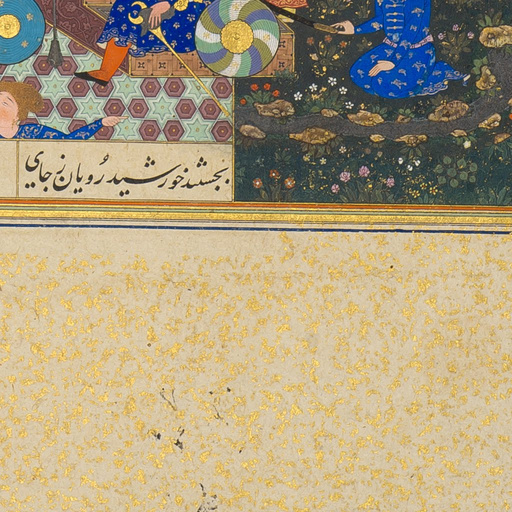 بجستند خورشید رویان ز جای